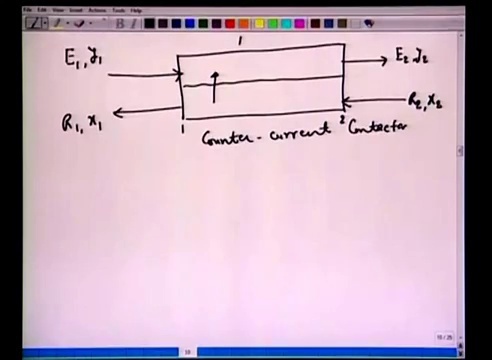 File Edit View Insert Actions Tools Help
1
E₁, y₁
E₂, y₂
R₁, x₁
R₂, x₂
1
2
Counter-current Contactor
10/25
10